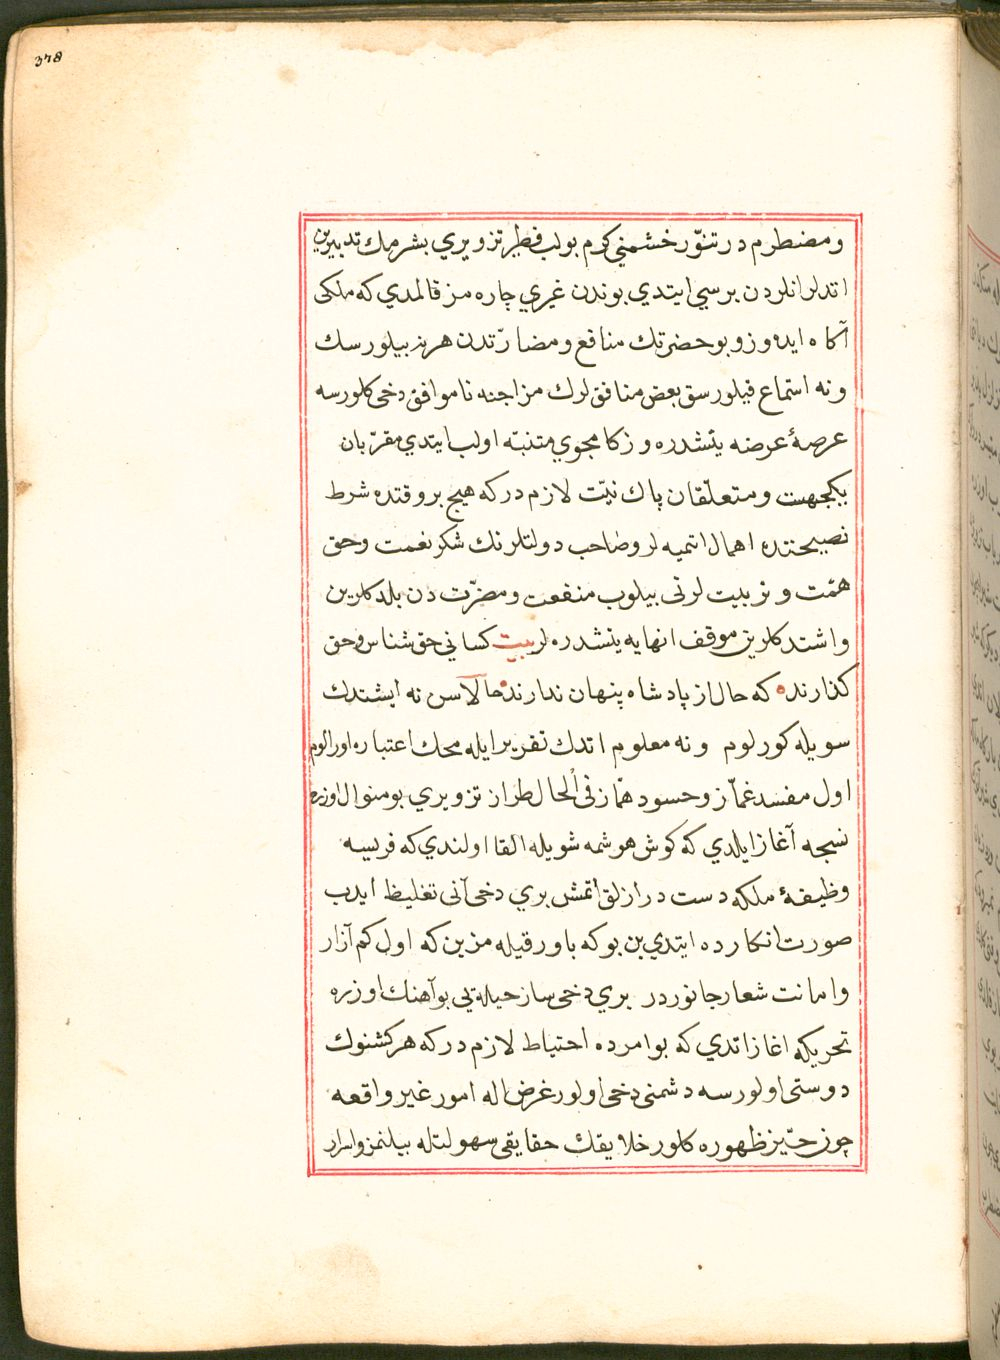 378
و مضطرم در تنوّر خشمني كرم بولب فطير تزويري بشرمك تدبيرين
اتدلر انلردن برسي ايتدي بوندن غيري چاره مز قالمدي كه ملكى
آكاه ايده وز و بو حضرتك منافع و مضارّتدن هر نه بيلورسك
و نه استماع قيلورسق بعض منافق لرك مزاجنه ناموافق دخى كلورسه
عرصهٔ عرضه يتشدره وز كامجوي متنبّه اولب ايتدي مقرّبان
يكجهت و متعلّقان پاك نيّت لازم در كه هيچ بر وقتده شرط
نصيحتده اهمال اتميه لر و صاحب دولتلرنك شكر نعمت و حق
همّت و تربيت لرنى بيلوب منفعت و مضرّت دن بلدكلرين
و اشتدكلرين موقف انهايه يتشدره لر بيت كسانى حق شناس و حق
كذارند كه حال از پادشاه پنهان ندارند حالا سن نه ايشتدك
سويله كورلوم و نه معلوم اتدك تقرير ايله محك اعتباره اورالوم
اول مفسد غمّاز و حسود همّاز فى الحال طراز تزويري بو منوال اوزره
نسجه آغاز ايلدي كه كوش هوشمه شويله القا اولندي كه فريسه
وظيفهٔ ملكه دست درازلق اتمش بري دخى آنى تغليظ ايدب
صورت انكارده ايتدي بن بو كه باور قيله مزين كه اول كم آزار
و امانت شعار جانوردر بري دخى ساز حيله يى بو آهنك اوزره
تحريكه اغاز اتدي كه بو امرده احتياط لازم در كه هر كشنوك
دوستى اولورسه دشمنى دخى اولور غرض اله امور غير واقعه
چوز حيّز ظهوره كلور خلايقك حقايقى سهولتله بيلنمز و اسرار